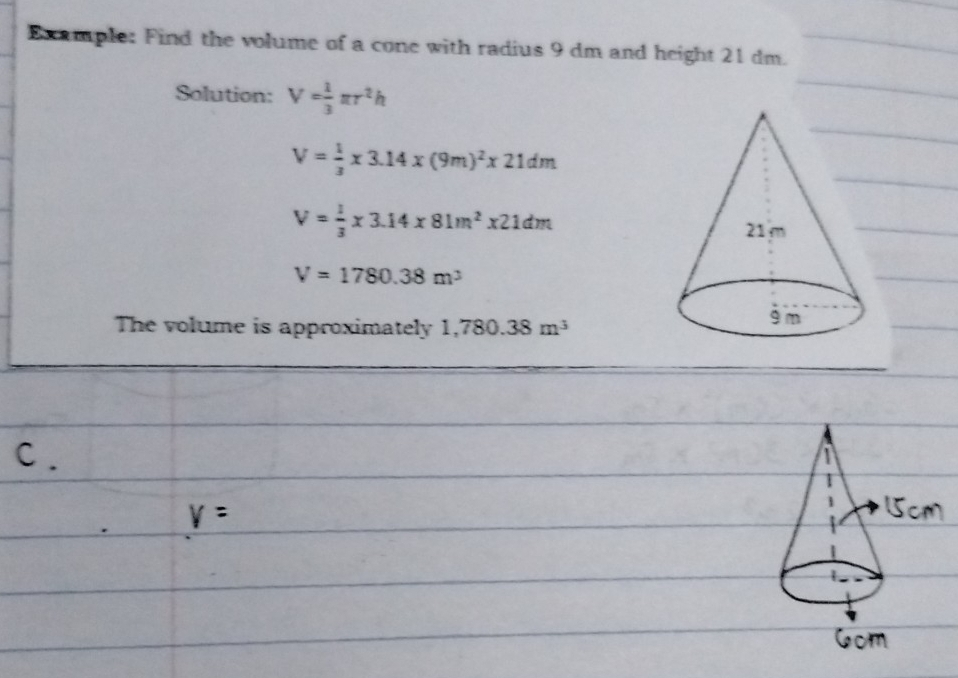 Example: Find the volume of a cone with radius 9 dm and height 21 dm.
Solution: V = 1/3 πr²h
V = 1/3 x 3.14 x (9m)² x 21dm
V = 1/3 x 3.14 x 81m² x21dm
V = 1780.38 m³
The volume is approximately 1,780.38 m³
21 m
9 m
C.
V =
15cm
6cm